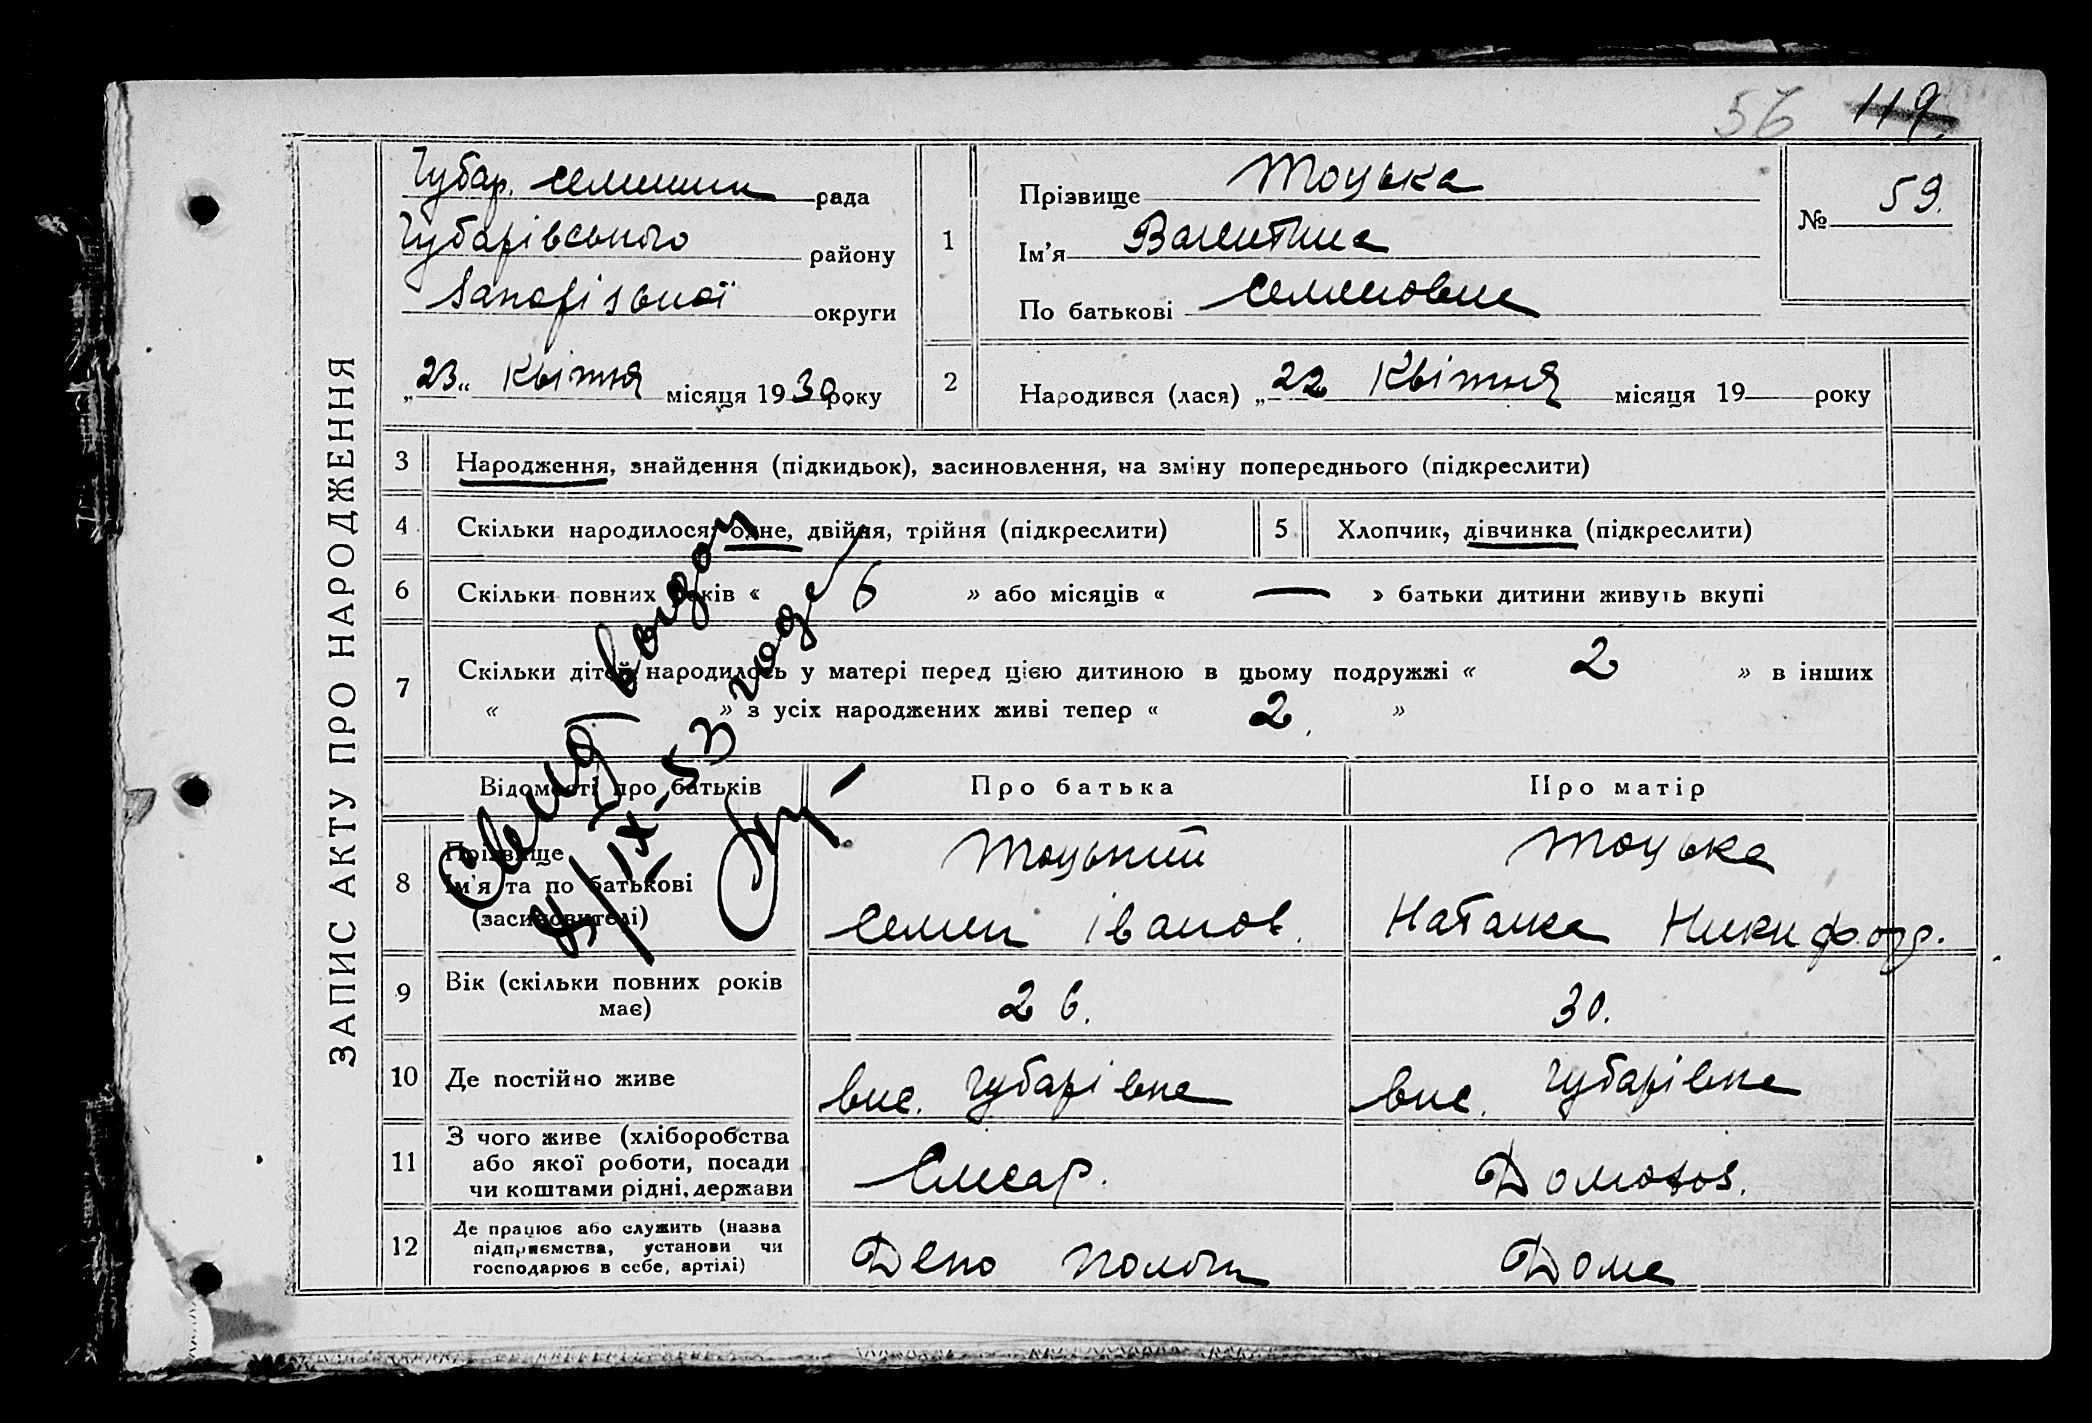 56 119.
ЗАПИС АКТУ ПРО НАРОДЖЕННЯ
Губар. селищна рада
Губарівського району
Запорізької округи
„23" Квітня місяця 1930 року
1
Прізвище Тоцька
Ім'я Валентина
По батькові Семеновна
№ 59.
2
Народився (лася) „22 Квітня місяця 19 року
3 Народження, знайдення (підкидьок), засиновлення, на зміну попереднього (підкреслити)
4 Скільки народилося: одне, двійня, трійня (підкреслити)
5 Хлопчик, дівчинка (підкреслити)
6 Скільки повних років « 6 » або місяців « — » батьки дитини живуть вкупі
7 Скільки дітей народилось у матері перед цією дитиною в цьому подружжі « 2 » в інших
« — » з усіх народжених живі тепер « 2. »
Відомості про батьків Про батька Про матір
8 Прізвище
Ім'я та по батькові
(засиновителі)
Тоцький
Семен Іванов.
Тоцька
Наталка Никифор.
9 Вік (скільки повних років
має)
26. 30.
10 Де постійно живе вис. Губарівка вис. Губарівка
11 З чого живе (хліборобства
або якої роботи, посади
чи коштами рідні, держави
Слюсар. Домогос.
12 Де працює або служить (назва
підприємства, установи чи
господарює в себе, артілі)
Депо Пологи Дома
IX-53 года